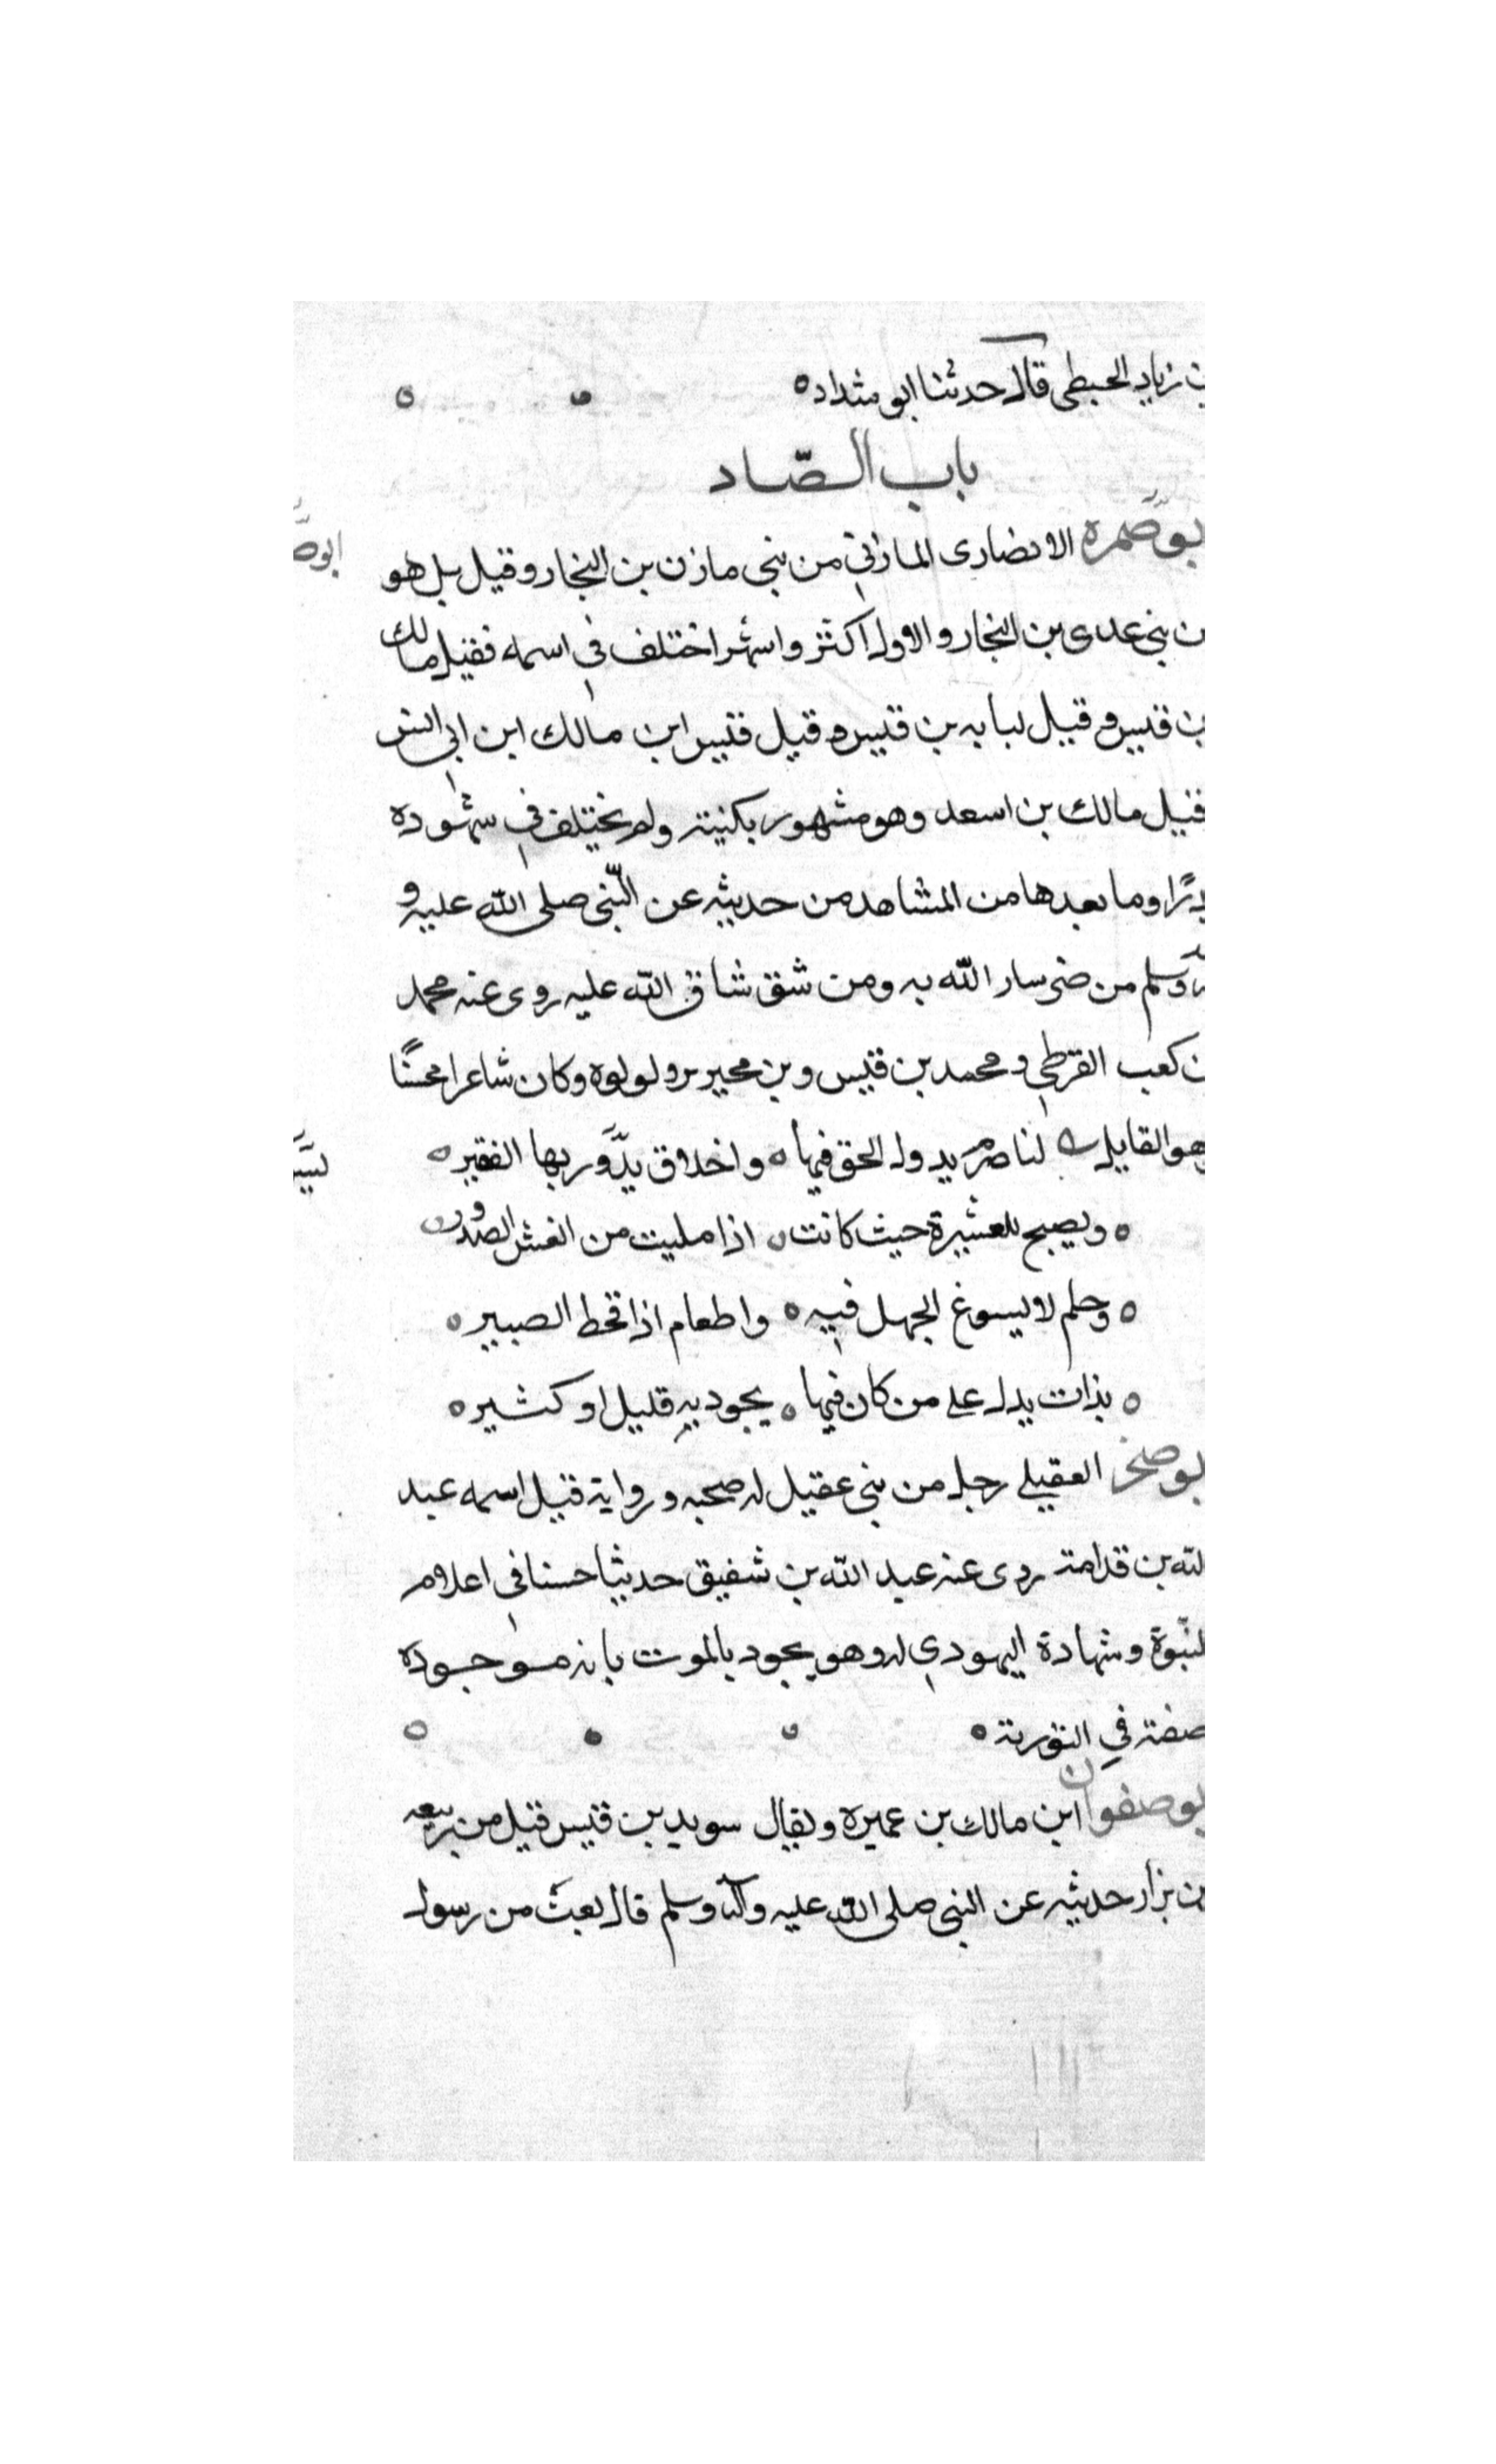 بن زياد الحبطى قال حدثنا ابو شداد
باب الصّاد
بو صمره الانصارى المازنى من بنى مازن بن النجار وقيل بل هو
ن بنى عدى بن النجار والاول اكثر واشهر اختلف فى اسمه فقيل مالك
بن قيس وقيل لبابه بن قيس وقيل قيس ابن مالك ابن ابى انس
قيل مالك بن اسعد وهو مشهور بكنيته ولم يختلف فى شهوده
بدرًا وما بعدها من المشاهد من حديثه عن النّبى صلى اللّه عليه و
وسلم من ضر سار اللّه به ومن شق شاق اللّه عليه روى عنه محمد
ن كعب القرظى ومحمد بن قيس وبن محيريز ولولوة وكان شاعرا محسنًا
وهو القايل لنا صرم يدول الحق فيها واخلاق يدَّور بها الفقير
ويصبح للعشيرة حيث كانت اذا مليت من الغش الصدور
وحلم لا يسوغ الجهل فيه واطعام اذا قحط الصبير
بذات يدل على من كان فيها يجود به قليل او كثير
بو صخر العقيلى رجل من بنى عقيل له صحبه ورواية قيل اسمه عبد
لله بن قدامة روى عنه عبد اللّه بن شفيق حديثا حسنا فى اعلام
لنبّوة وشهادة اليهودى له وهو يجود بالموت بانه موجوده
صفته فى التورية
بو صفوان ابن مالك بن عميره ويقال سويد بن قيس قيل من ربيعه
بن نزار حديثه عن النبى صلى اللّه عليه وآله وسلم قال بعث من رسول